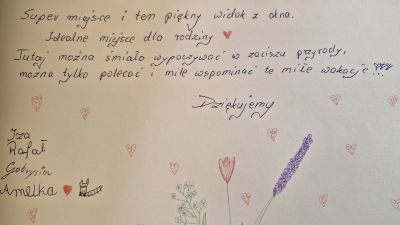 Super miejsce i ten piękny widok z okna.
Idealne miejsce dla rodziny
Tutaj można śmiało wypoczywać w zaciszu przyrody,
można tylko polecać i mile wspominać te miłe wakacje !!!
Dziękujemy
Iza
Rafał
Gabrysia
Amelka